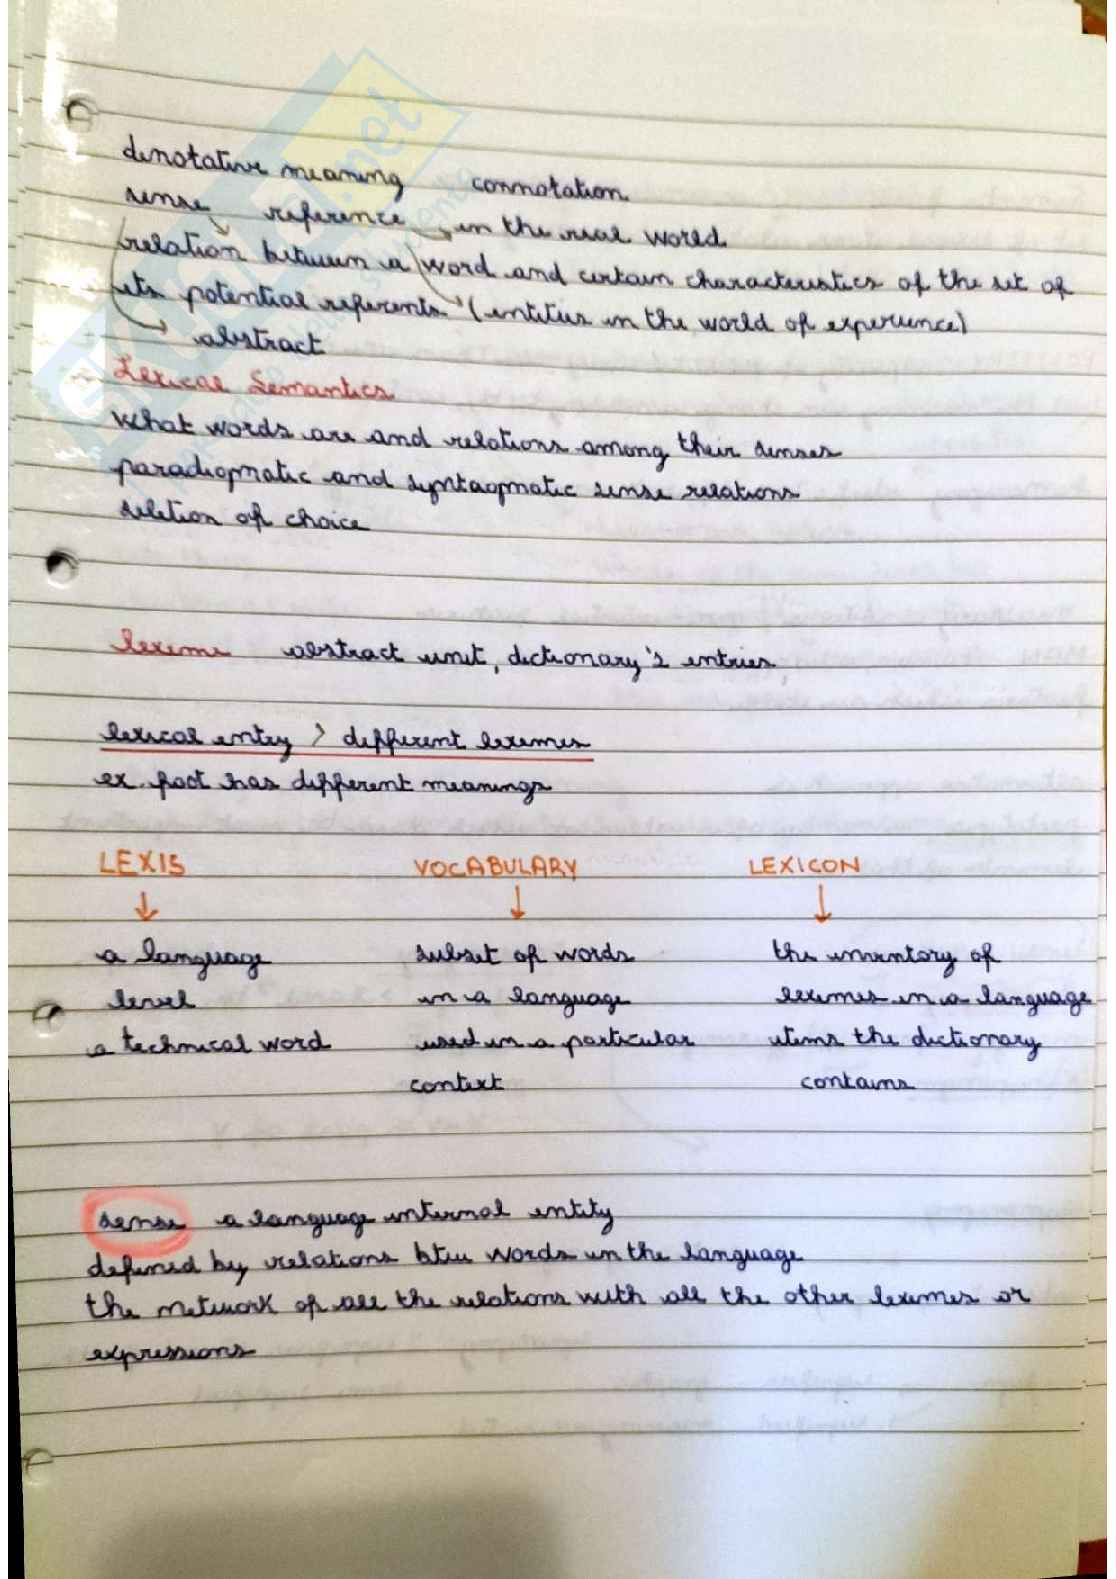 denotative meaning connotation
sense reference in the real world
relation between a word and certain characteristics of the set of
its potential referents (entities in the world of experience)
abstract
Lexical Semantics
What words are and relations among their senses
paradigmatic and syntagmatic sense relations
of choice
lexeme abstract unit, dictionary's entries
lexical entry > different lexemes
ex. foot has different meanings
LEXIS VOCABULARY LEXICON
a language subset of words the inventory of
level in a language lexemes in a language
a technical word used in a particular items the dictionary
context contains
sense a language internal entity
defined by relations btw words in the language
the network of all the relations with all the other lexemes or
expressions